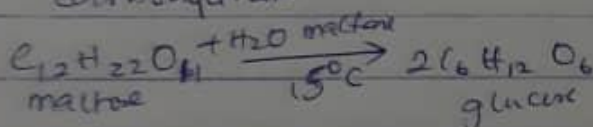 C12H22O11 + H2O maltase
15°C 2C6H12O6
maltose glucose